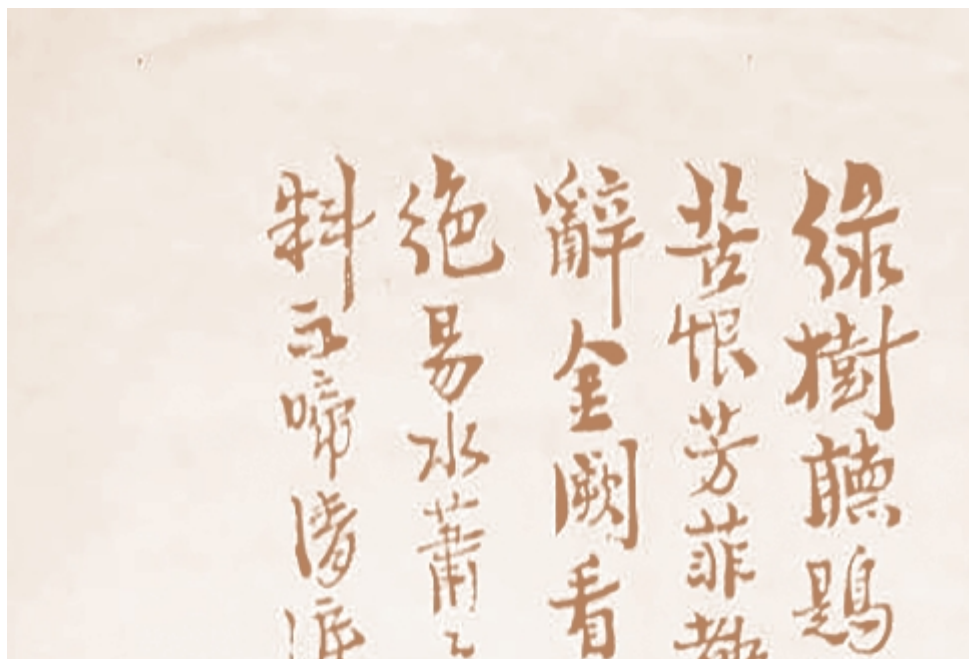 綠樹聽鶗
苦恨芳菲都
辭金闕看
絕易水蕭々
料不啼清淚